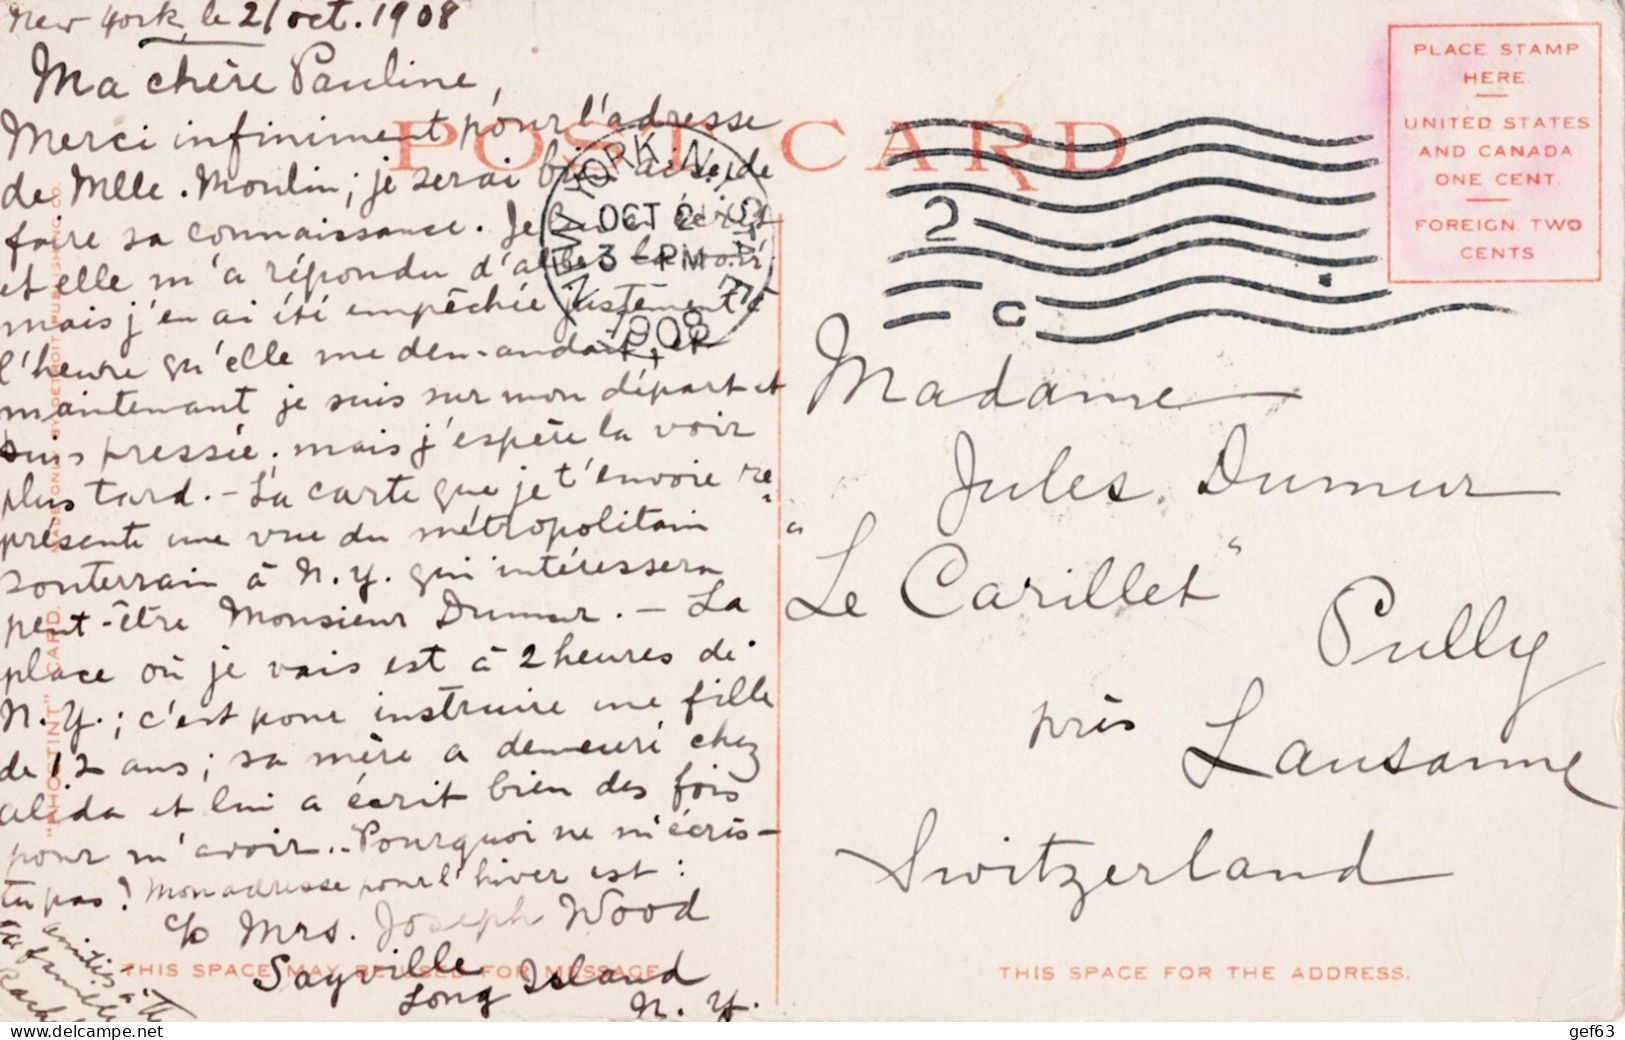 New York, le 21 oct. 1908
Ma chère Pauline,
Merci infiniment pour l'adresse
de Mlle. Moulin; je serai bien aise de
faire sa connaissance. Je lui ai écrit
et elle m'a répondu d'aller la voir
mais j'en ai été empêchée justement à
l'heure qu'elle me demandait, et
maintenant je suis sur mon départ et
suis pressée. mais j'espère la voir
plus tard. - La carte que je t'envoie re
présente une vue du métropolitain
souterrain à N.Y. qui intéressera
peut-être Monsieur Dumur. - La
place où je vais est à 2 heures de
N.Y.; c'est pour instruire une fille
de 12 ans; sa mère a demeuré chez
Alida et lui a écrit bien des fois
pour m'avoir.. Pourquoi ne m'écris-
tu pas? Mon adresse pour l'hiver est:
c/o Mrs. Joseph Wood
Sayville
Long Island
N.Y.
amitiés à
ta famille
POST CARD
NEW YORK, N.Y.
OCT 21
3 - PM
1908
2
C
PLACE STAMP
HERE.
UNITED STATES
AND CANADA
ONE CENT.
FOREIGN, TWO
CENTS
Madame
Jules Dumur
"Le Carillet"
Pully
près
Lausanne
Switzerland
"PHOSTINT" CARD. MADE ONLY BY DETROIT PUBLISHING CO.
THIS SPACE MAY BE USED FOR MESSAGE
THIS SPACE FOR THE ADDRESS.
gef63